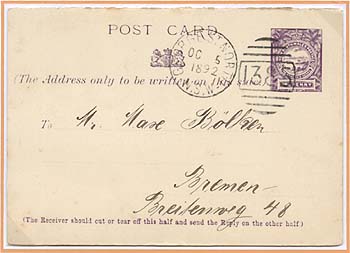 POST CARD
OC 5
1892
N.S.W
(The Address only to be written on this side.)
138
To Mr. Max Bölken
Bremen
Breitenweg 48
(The Receiver should cut or tear off this half and send the Reply on the other half)